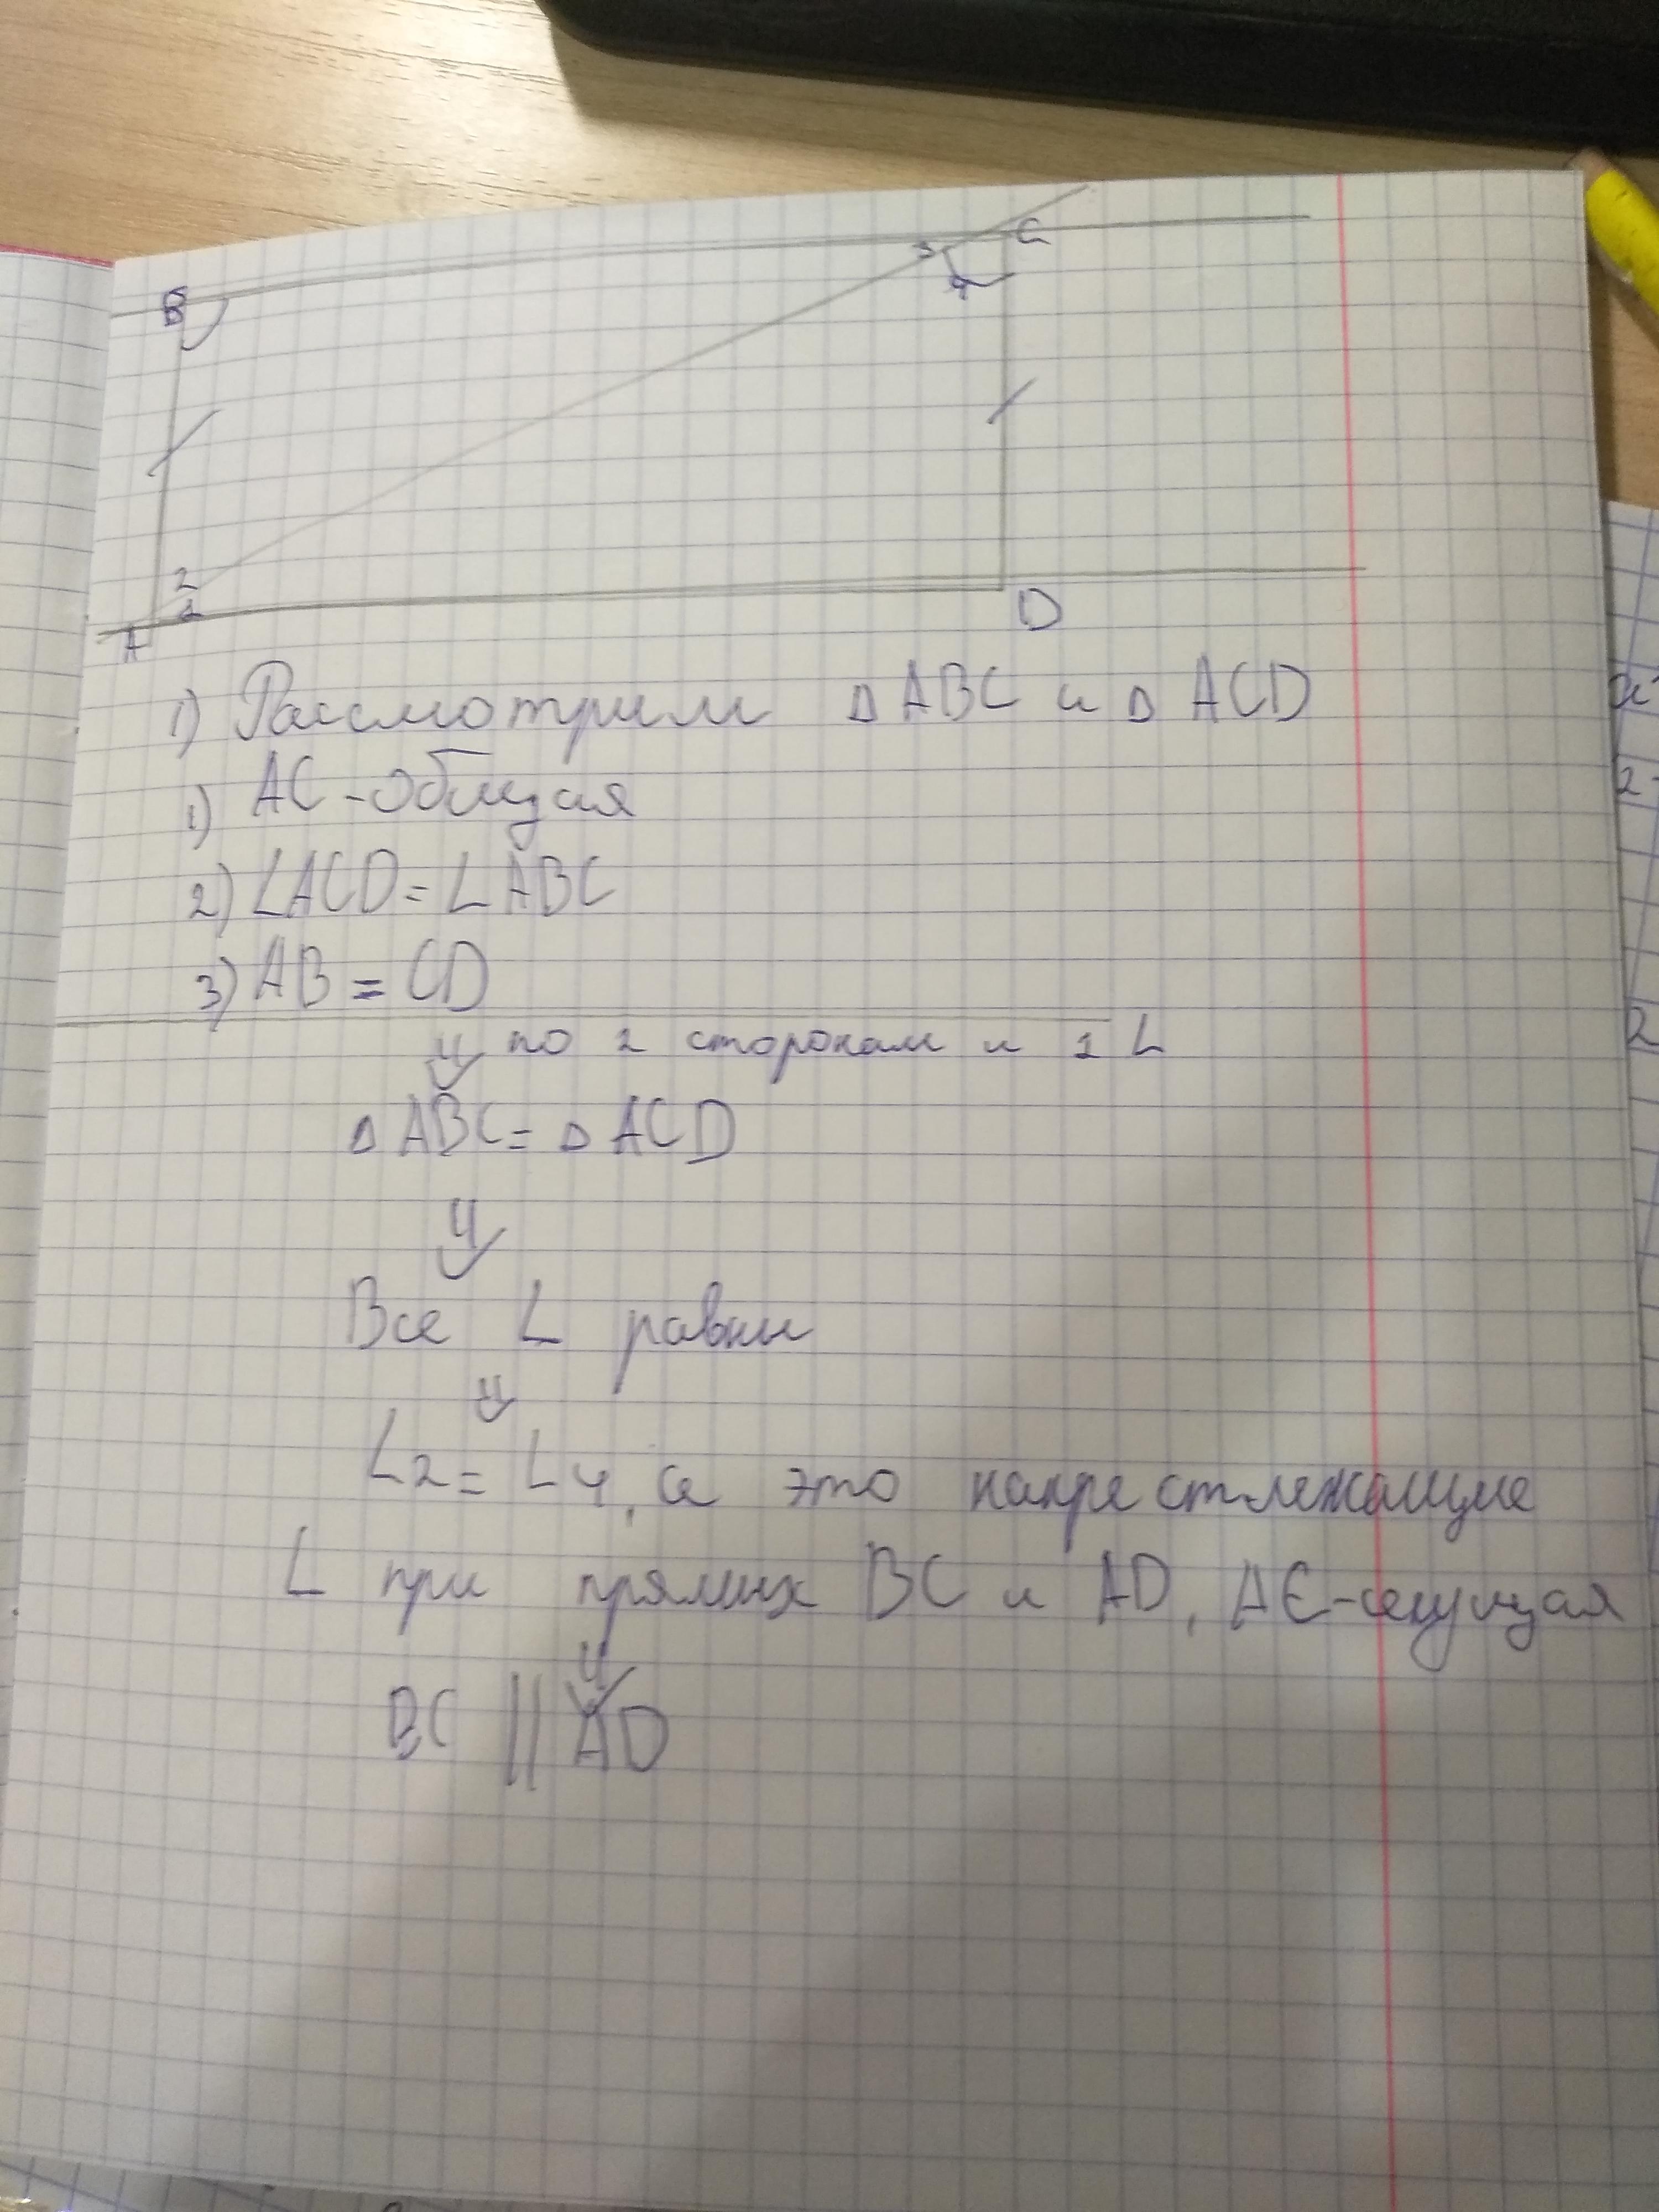 B
C
3
4
2
1
A
D
1) Рассмотрим Δ ABC и Δ ACD
1) AC - общая
2) ∠ACD = ∠ABC
3) AB = CD
⇓ по 2 сторонам и 1 ∠
Δ ABC = Δ ACD
⇓
Все ∠ равны
⇓
∠2 = ∠4, а это накрестлежащие
∠ при прямых BC и AD, AC - секущая
⇓
BC || AD
2
2